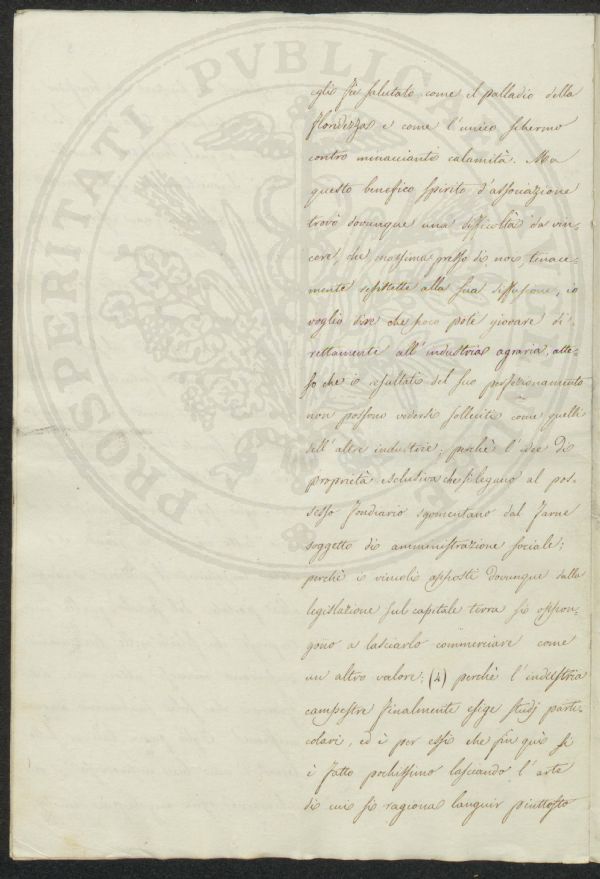 PROSPERITATI PVBLICAE
egli fu salutato come il palladio della
floridezza e come l'unico schermo
contro minaccianti calamità. Ma
questo benefico spirito d'associazione
trovò dovunque una difficoltà da vin=
cere, che massima presso di noi, tenace=
mente resistette alla sua diffusione, io
voglio dire che poco potè giovare di=
rettamente all'industria agraria, atte=
so che i resultati del suo perfezionamento
non possono vedersi solleciti come quelli
dell'altre industrie; perchè l'idee di
proprietà esclusiva che si legano al pos=
sesso fondiario sgomentano dal farne
soggetto di amministrazione sociale;
perchè i vincoli apposti dovunque dalla
legislazione sul capitale terra si oppon=
gono a lasciarlo commerciare come
un altro valore; (4) perchè l'industria
campestre finalmente esige studj parti=
colari, ed è per essi che fin quì si
è fatto pochissimo lasciando l'arte
di cui si ragiona languir piuttosto